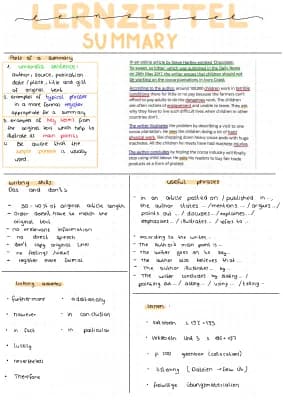 LERNZETTEL
SUMMARY
Parts of a Summary
1. umbrella sentence:
author, source, publication
date / place, title and gist
of original text
2. examples of typical phrases
in a more formal register
appropriate for a summary
3. examples of key words from
the original text which help to
illustrate the main points
4. Be aware that the
simple present is usually
used.
In an online article by Steve Hartley entitled
to sweet, so bitter, which was published in the Daily News
on 26th May 2017, the writer argues that children should not
be working on the cocoa plantations in Ivory Coast.
According to the author, around 100,000 children work in terrible
conditions there for little or no pay because the farmers can't
afford to pay adults to do the dangerous work. The children
are often victims of and unable to leave. They ask
why they have to live such difficult lives when children in other
countries don't.
The writer illustrates the problem by describing a visit to one
cocoa plantation. He sees the children doing a lot of hard
physical work, like chopping down heavy cocoa pods with huge
machetes. All the children he meets have had machete injuries.
The author concludes by the cocoa industry and
stop using child labour. He asks his readers to buy fair trade
products as a form of protest.
writing skills:
Dos and dont's
- 30 - 40% of original article length
- order doesnt have to match the
original text
- no irrelevant information
- no direct speech
- don't copy original lines
- no feeling / intent
- register more formal
useful phrases
- in an article posted on / published in...,
the author states... / mentions... / argues...
points out... / discusses... / explains... /
emphasizes... / illustrates... / refers to...
- according to the writer...
- The author's main point is...
- The writer goes on to say...
- The author also believes that...
- The author illustrates... by...
- The writer concludes by saying... /
pointing out... / asking... / using... / telling...
linking words
- furthermore
- however
- in fact
- luckily
- nevertheless
- Therefore
- additionally
- in conclusion
- in particular
lernen:
- Vokabeln s. 193 - 195
- Vokabeln Unit 3 s.
- p. 100 grammar (collocation)
- listening (Dateien → New u6)
- freiwillige Übungsmediation